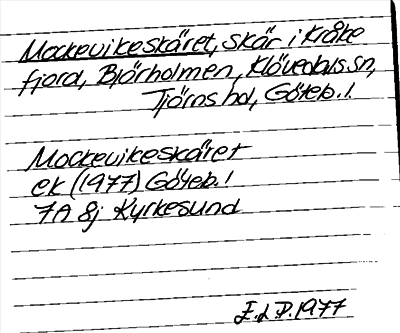 Mockevikeskäret, skär i Kråke
fjord, Björholmen, Klövedals sn,
Tjörns hd, Göteb. l.
Mockevikeskäret
ek (1977) Göteb. l
7A 8j Kyrkesund
E.L.P. 1977